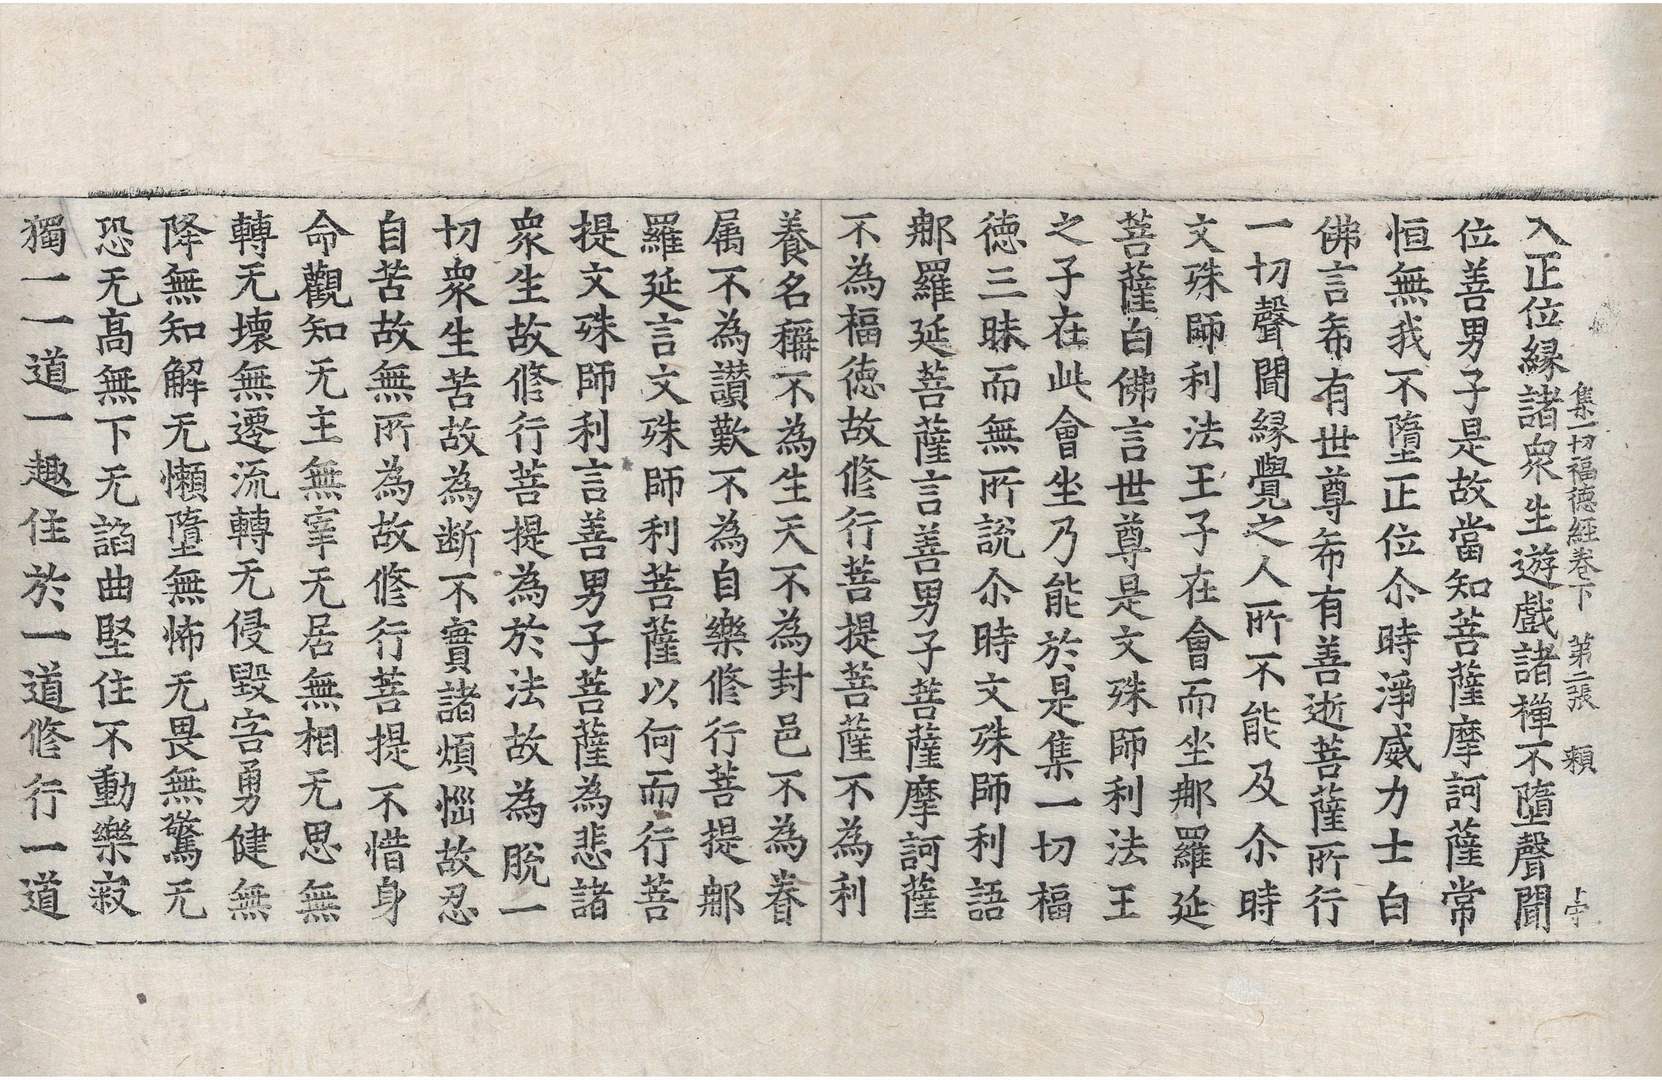 集一切福德經卷下　第二張　賴　上守
入正位緣諸衆生遊戲諸禪不墮聲聞
位善男子是故當知菩薩摩訶薩常
恒無我不墮正位尒時淨威力士白
佛言希有世尊希有善逝菩薩所行
一切聲聞緣覺之人所不能及尒時
文殊師利法王子在會而坐那羅延
菩薩白佛言世尊是文殊師利法王
之子在此會坐乃能於是集一切福
德三昧而無所說尒時文殊師利語
那羅延菩薩言善男子菩薩摩訶薩
不為福德故修行菩提菩薩不為利
養名稱不為生天不為封邑不為眷
属不為讃歎不為自樂修行菩提那
羅延言文殊師利菩薩以何而行菩
提文殊師利言善男子菩薩為悲諸
衆生故修行菩提為於法故為脫一
切衆生苦故為断不實諸煩惱故忍
自苦故無所為故修行菩提不惜身
命觀知无主無宰无居無相无思無
轉无壞無遷流轉无侵毀害勇健無
降無知解无懶墮無怖无畏無驚无
恐无高無下无諂曲堅住不動樂寂
獨一一道一趣住於一道修行一道